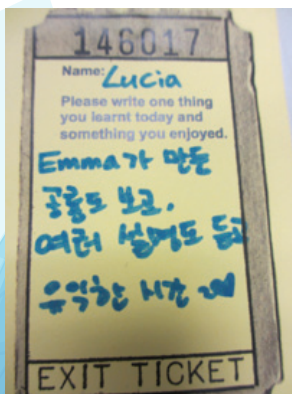 146017
Name: Lucia
Please write one thing
you learnt today and
something you enjoyed.
Emma가 만든
공룡도 보고,
여러 설명도 듣고
유익한 시간
EXIT TICKET